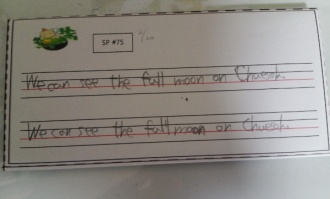 SP #75
We can see the full moon on Chuseok.
We can see the full moon on Chuseok.